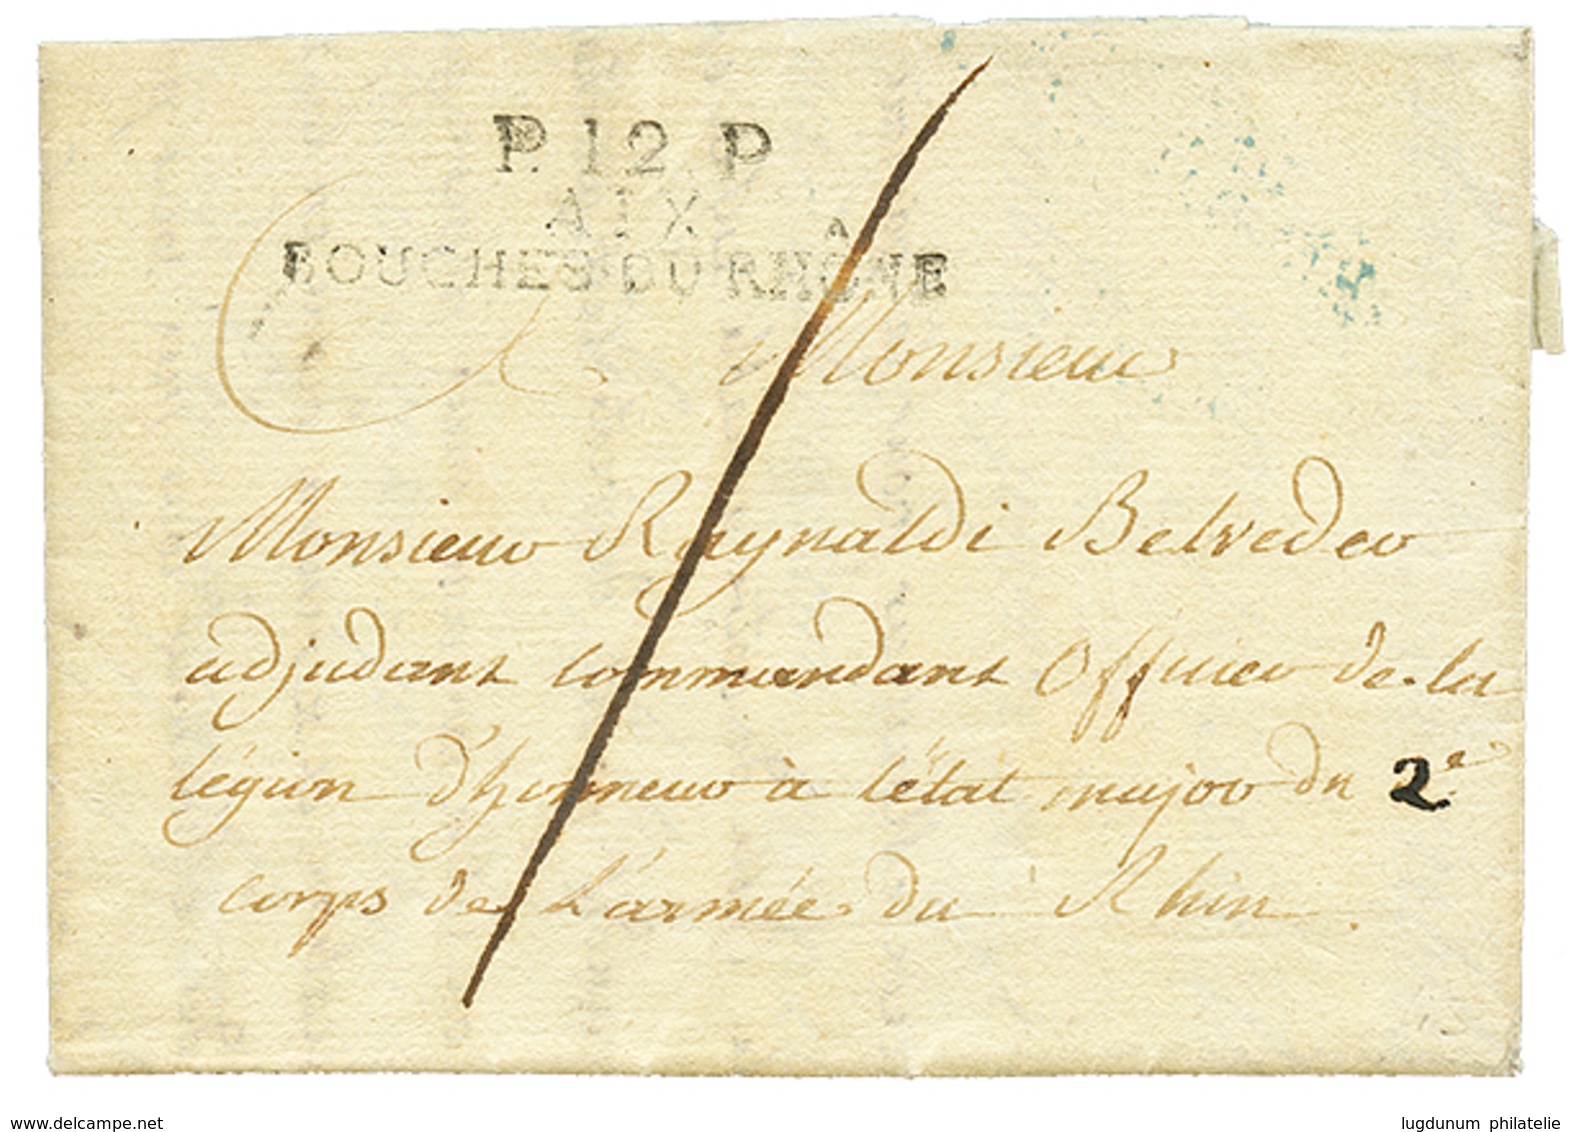 P. 12. P
AIX
BOUCHES DU RHÔNE
Monsieur
Monsieur Raynaldi Belveder
adjudant commandant Officier de la
légion d'honneur à l'état major du 2e
corps de L'armée du Rhin.
www.delcampe.net
lugdunum philatelie